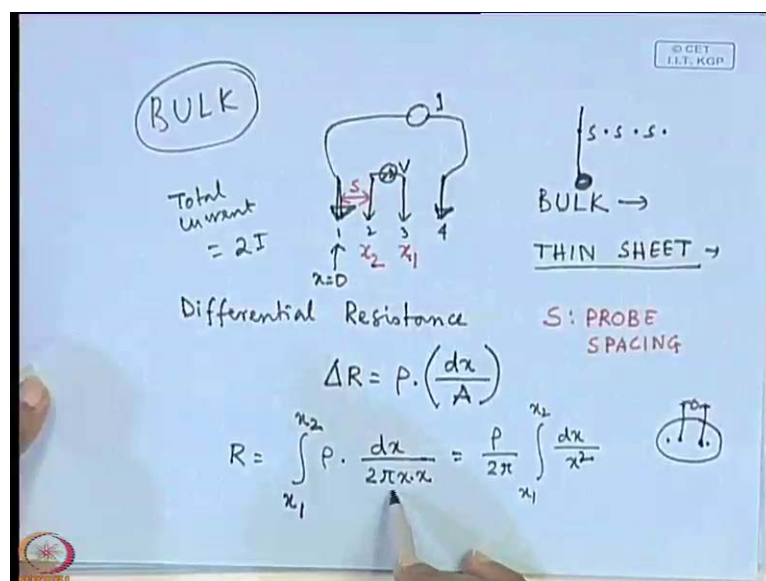 © CET
I.I.T. KGP
BULK
Total
current
= 2I
I
S
V
1 2 3 4
x₂ x₁
x=0
S . S . S .
BULK →
THIN SHEET →
Differential Resistance
S: PROBE
SPACING
ΔR = ρ. (dx/A)
R = ∫_{x₁}^{x₂} ρ. dx/(2πx.x) = ρ/2π ∫_{x₁}^{x₂} dx/x²